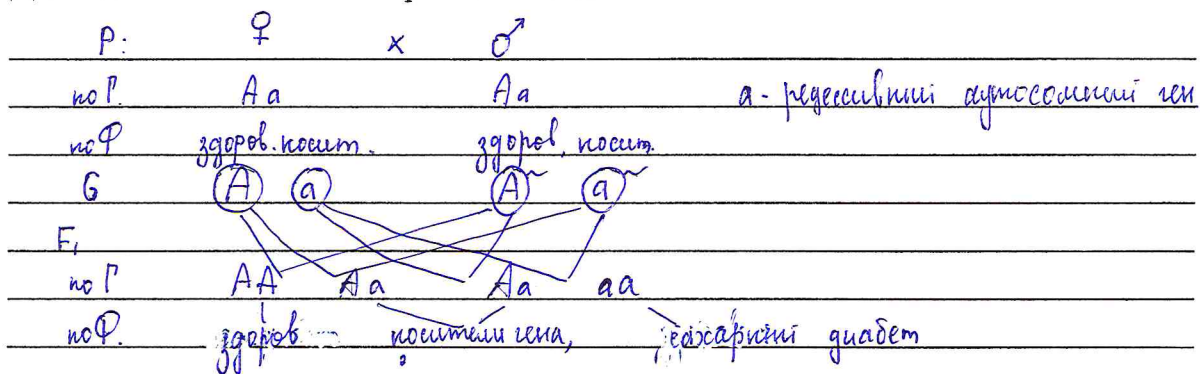 P: ♀ x ♂
по Г. Aa Aa a - рецессивный аутосомный ген
по Ф здоров. носит. здоров. носит.
G A a A a
F₁
по Г AA Aa Aa aa
по Ф. здоров носители гена, сахарный диабет